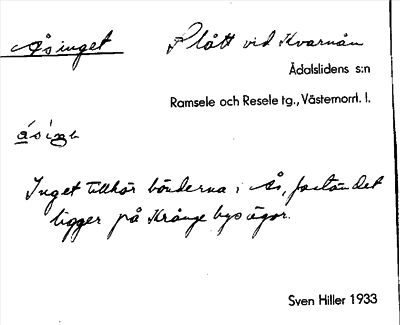 Åsinget Slått vid Kvarnån
Ådalslidens s:n
Ramsele och Resele tg., Västernorrl. l.
Inget tillhör bönderna i Ås, fastän det
ligger på Krånge bys ägor.
Sven Hiller 1933